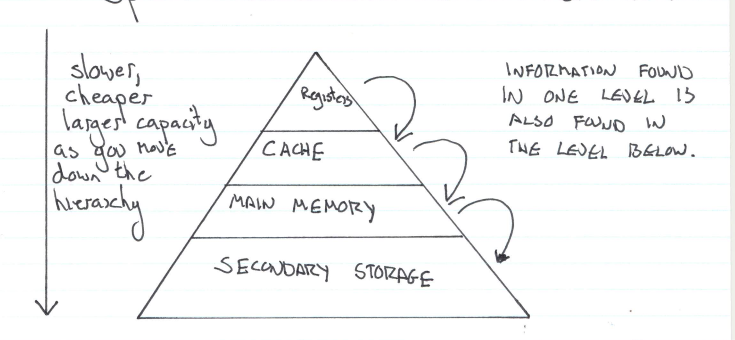 slower,
cheaper
larger capacity
as you move
down the
hierarchy
Registers
CACHE
MAIN MEMORY
SECONDARY STORAGE
INFORMATION FOUND
IN ONE LEVEL IS
ALSO FOUND IN
THE LEVEL BELOW.